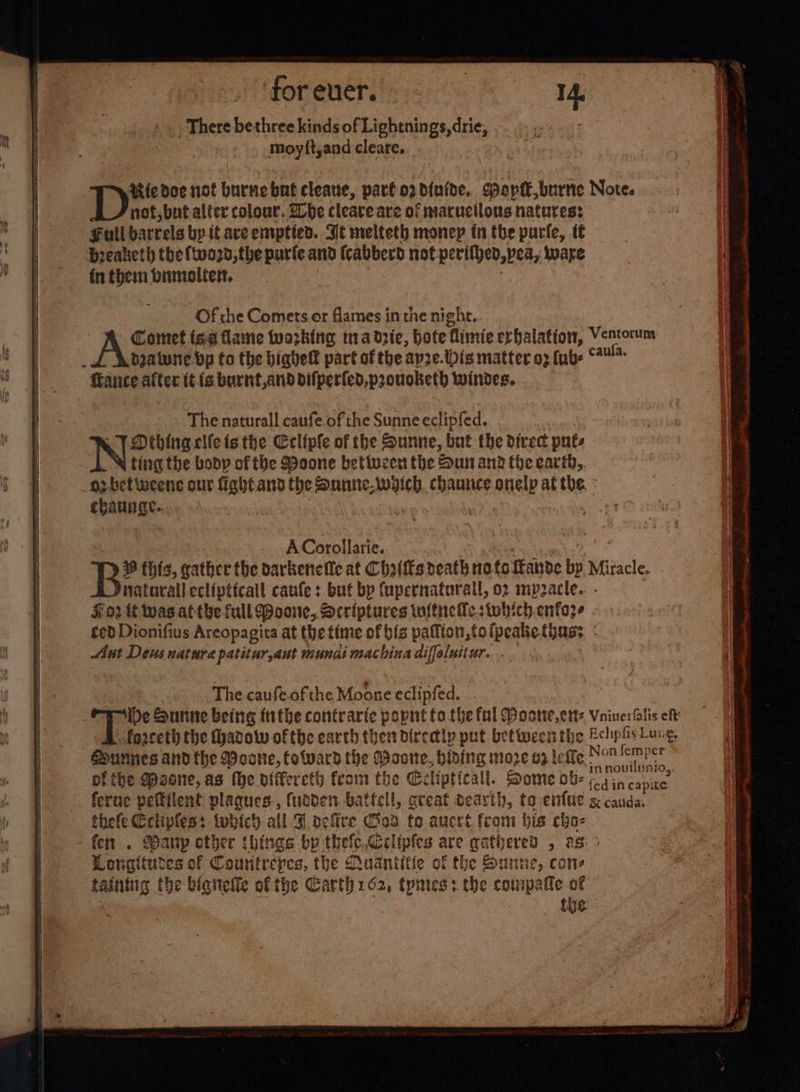 for euer. 14.
There be three kinds of Lightnings, drie,
moyſt, and cleare.
DRie doe not burne but cleaue, part oz diuide. Moyſt, burne Note.
not, but alter colour. The cleare are of maruellous natures:
Full barrels by it are emptied. It melteth money in the purſe, it
bzeaketh the ſwozd, the purſe and ſcabberd not periſhed, yea, waxe
in them vnmolten.
Of the Comets or flames in the night.
A Comet is a flame wozking in a dzie, hote ſlimie exhalation, Ventorum
dzawne vp to the higheſt part of the ayze. His matter oz ſub- cauſa.
ſtance after it is burnt, and diſperſed, pzouoketh windes.
The naturall cauſe of the Sunne eclipſed.
NOthing elſe is the Eclipſe of the Sunne, but the direct put-
ting the body of the Moone betweene the Sun and the earth,
oz betweene our ſight and the Sunne, which chaunce onely at the
chaunge.
A Corollarie.
BY this, gather the darkeneſſe at Chziſts death no to ſtande by Miracle.
naturall eclipticall cauſe: but by ſupernaturall, oz myzacle.
Foz it was at the full Moone, Scriptures witneſſe: which enfoz-
ced Dioniſius Areopagita at the time of his paſſion, to ſpeake thus:
Aut Deus naturæ patitur, aut mundi machina diſſoluitur.
The cauſe of the Moone eclipſed.
THe Sunne being in the contrarie poynt to the ful Moone, en- Vniuerſalis eſt
fozceth the ſhadow of the earth then directly put betweene the Eclipſis Lunæ,
Sunnes and the Moone, toward the Moone, hiding moze oz leſſe Non ſemper
in nouilunio,
of the Moone, as ſhe differeth from the Eclipticall. Some ob- ſed in capite
ſerue peſtilent plagues, ſudden battell, great dearth, to enſue & cauda.
theſe Eclipſes: which all I deſire God to auert from his cho-
ſen. Many other things by theſe Eclipſes are gathered, as
Longitudes of Countreyes, the Quantitie of the Sunne, con-
taining the bigneſſe of the Earth 162, tymes: the compaſſe of
the